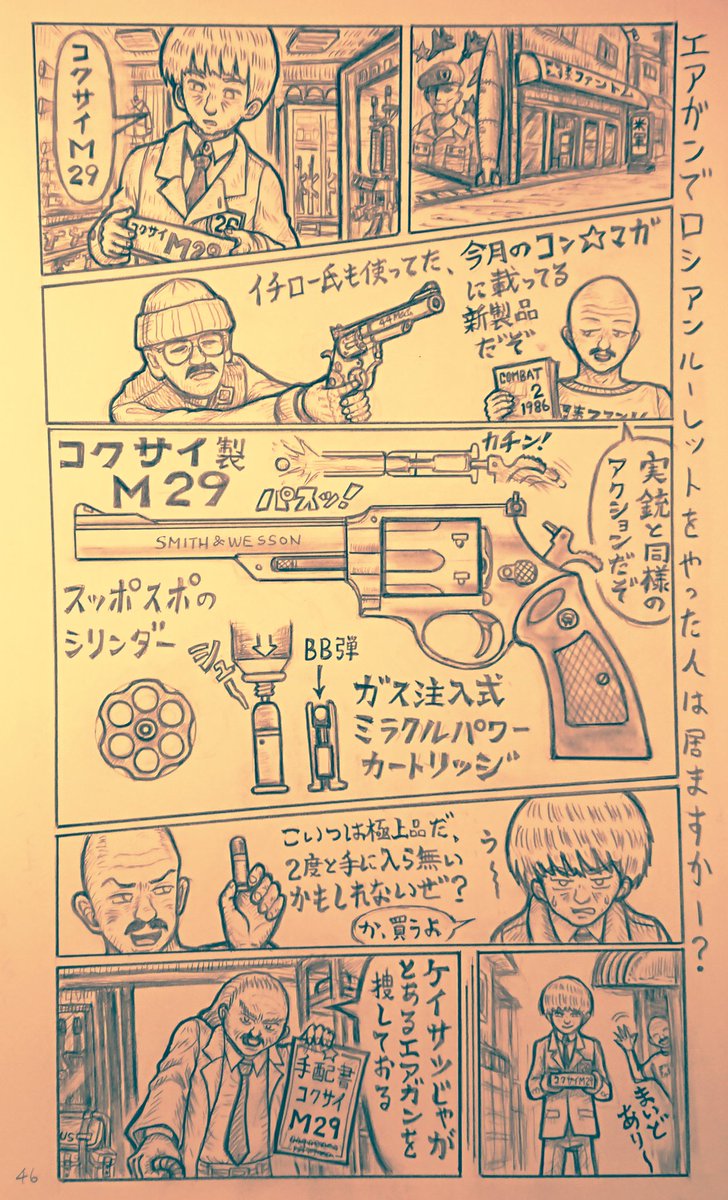 エアガンでロシアンルーレットをやった人は居ますかー?
ファントム
米軍
コクサイ
M
29
コクサイ
M29
今月のコン☆マガ
に載ってる
新製品
だぞ
COMBAT
2
1986
イチロー氏も使ってた、
実銃と同様の
アクションだぞ
コクサイ製
M29
カチン!
パスッ!
SMITH & WESSON
スッポスポの
シリンダー
シュー
BB弾
ガス注入式
ミラクルパワー
カートリッジ
う〜
こいつは極上品だ、
2度と手に入ら無い
かもしれないぜ?
か、買うよ
コクサイM29
まいど
あり〜
ケイサツじゃが
とあるエアガンを
捜しておる
手配書
コクサイ
M29
US
46